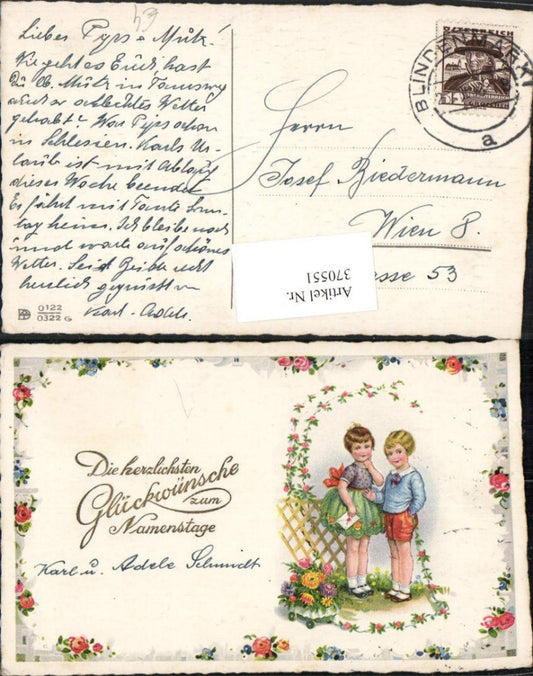 64
Liebes Pyps u Mutz!
Wie geht es Euch hast
Du lb. Mutz in
auch so schlechtes Wetter
gehabt? War Pyps schon
in Schlesien. Karls Ur-
laub ist mit Ablauf
dieser Woche beendet
Er fährt mit Tante
tag heim. Ich bleibe noch
und warte auf schönes
Wetter. Seid Beide recht
herzlich gegrüsst von
Karl - Adele.
0122
0322 G
ÖSTERREICH
BLINDENMARKT
a
Herrn
Josef Biedermann
Wien 8.
asse 53
Artikel Nr.
370551
Die herzlichsten
Glückwünsche
zum
Namenstage
Karl u. Adele Schmidt